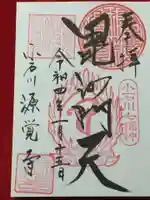 奉拝
毘沙門天
令和四年一月十五日
小石川 源覚寺
小石川七福神